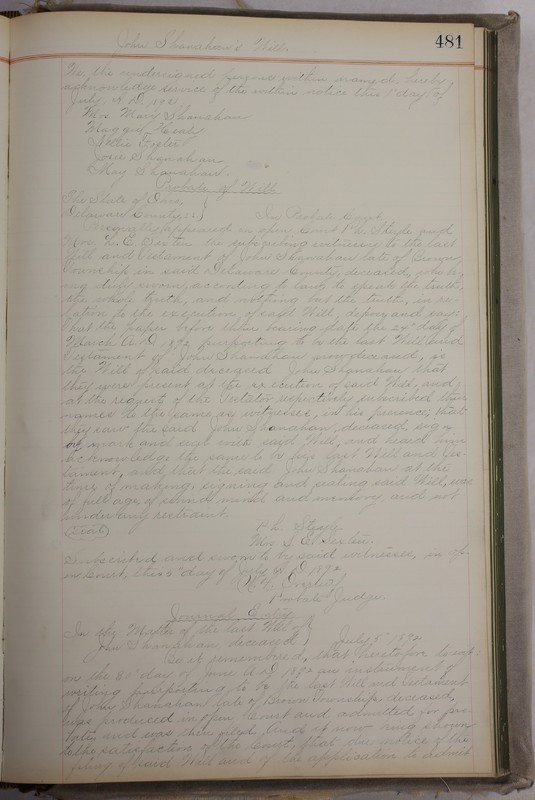 John Shanahan's Will.
481
We the undersigned persons within named, hereby
acknowledge service of the within notice this 1st day of
July, A.D. 189
Mrs. Mary Shanahan
Maggie Healy
Nellie
Josie Shanahan
May Shanahan.
Probate of Will
The State of Ohio,
Delaware County ss. In Probate Court
Personally appeared in open Court P. L. and
Mrs. the subscribing witnesses to the last
Will and Testament of John Shanahan late of Brown
Township in said Delaware County, deceased, who be-
ing duly sworn according to law, to speak the truth,
the whole truth, and nothing but the truth, in re-
lation to the execution of said Will, depose and say:
that the paper before them bearing date the 24" day of
March A.D. 1892 purporting to be the last Will and
Testament of John Shanahan now deceased, is
the Will of said deceased John Shanahan that
they were present at the execution of said Will, and
at the request of the Testator respectively subscribed their
names to the same as witnesses, in his presence; that
they saw the said John Shanahan, deceased, sign
mark and seal said Will, and heard him
acknowledge the same to be his last Will and Tes-
tament, and that the said John Shanahan at the
time of making, signing and sealing said Will, was
of full age, of sound mind and memory, and not
under any restraint.
(Seal) P. L.
Mrs.
Subscribed and sworn to by said witnesses, in op-
en Court, this 5" day of July A.D. 1892
Probate Judge.
Journal Entry
In the Matter of the last Will of
John Shanahan, deceased } July 5" 1892
Be it remembered, that heretofore to wit:
on the 21st day of June A.D. 1892 an instrument of
writing purporting to be the last Will and Testament
of John Shanahan late of Brown Township, deceased,
was produced in open Court and admitted for pro-
bate, and was then filed, And it now being shown
to the satisfaction of the Court, that due notice of the
filing of said Will and of the application to admit